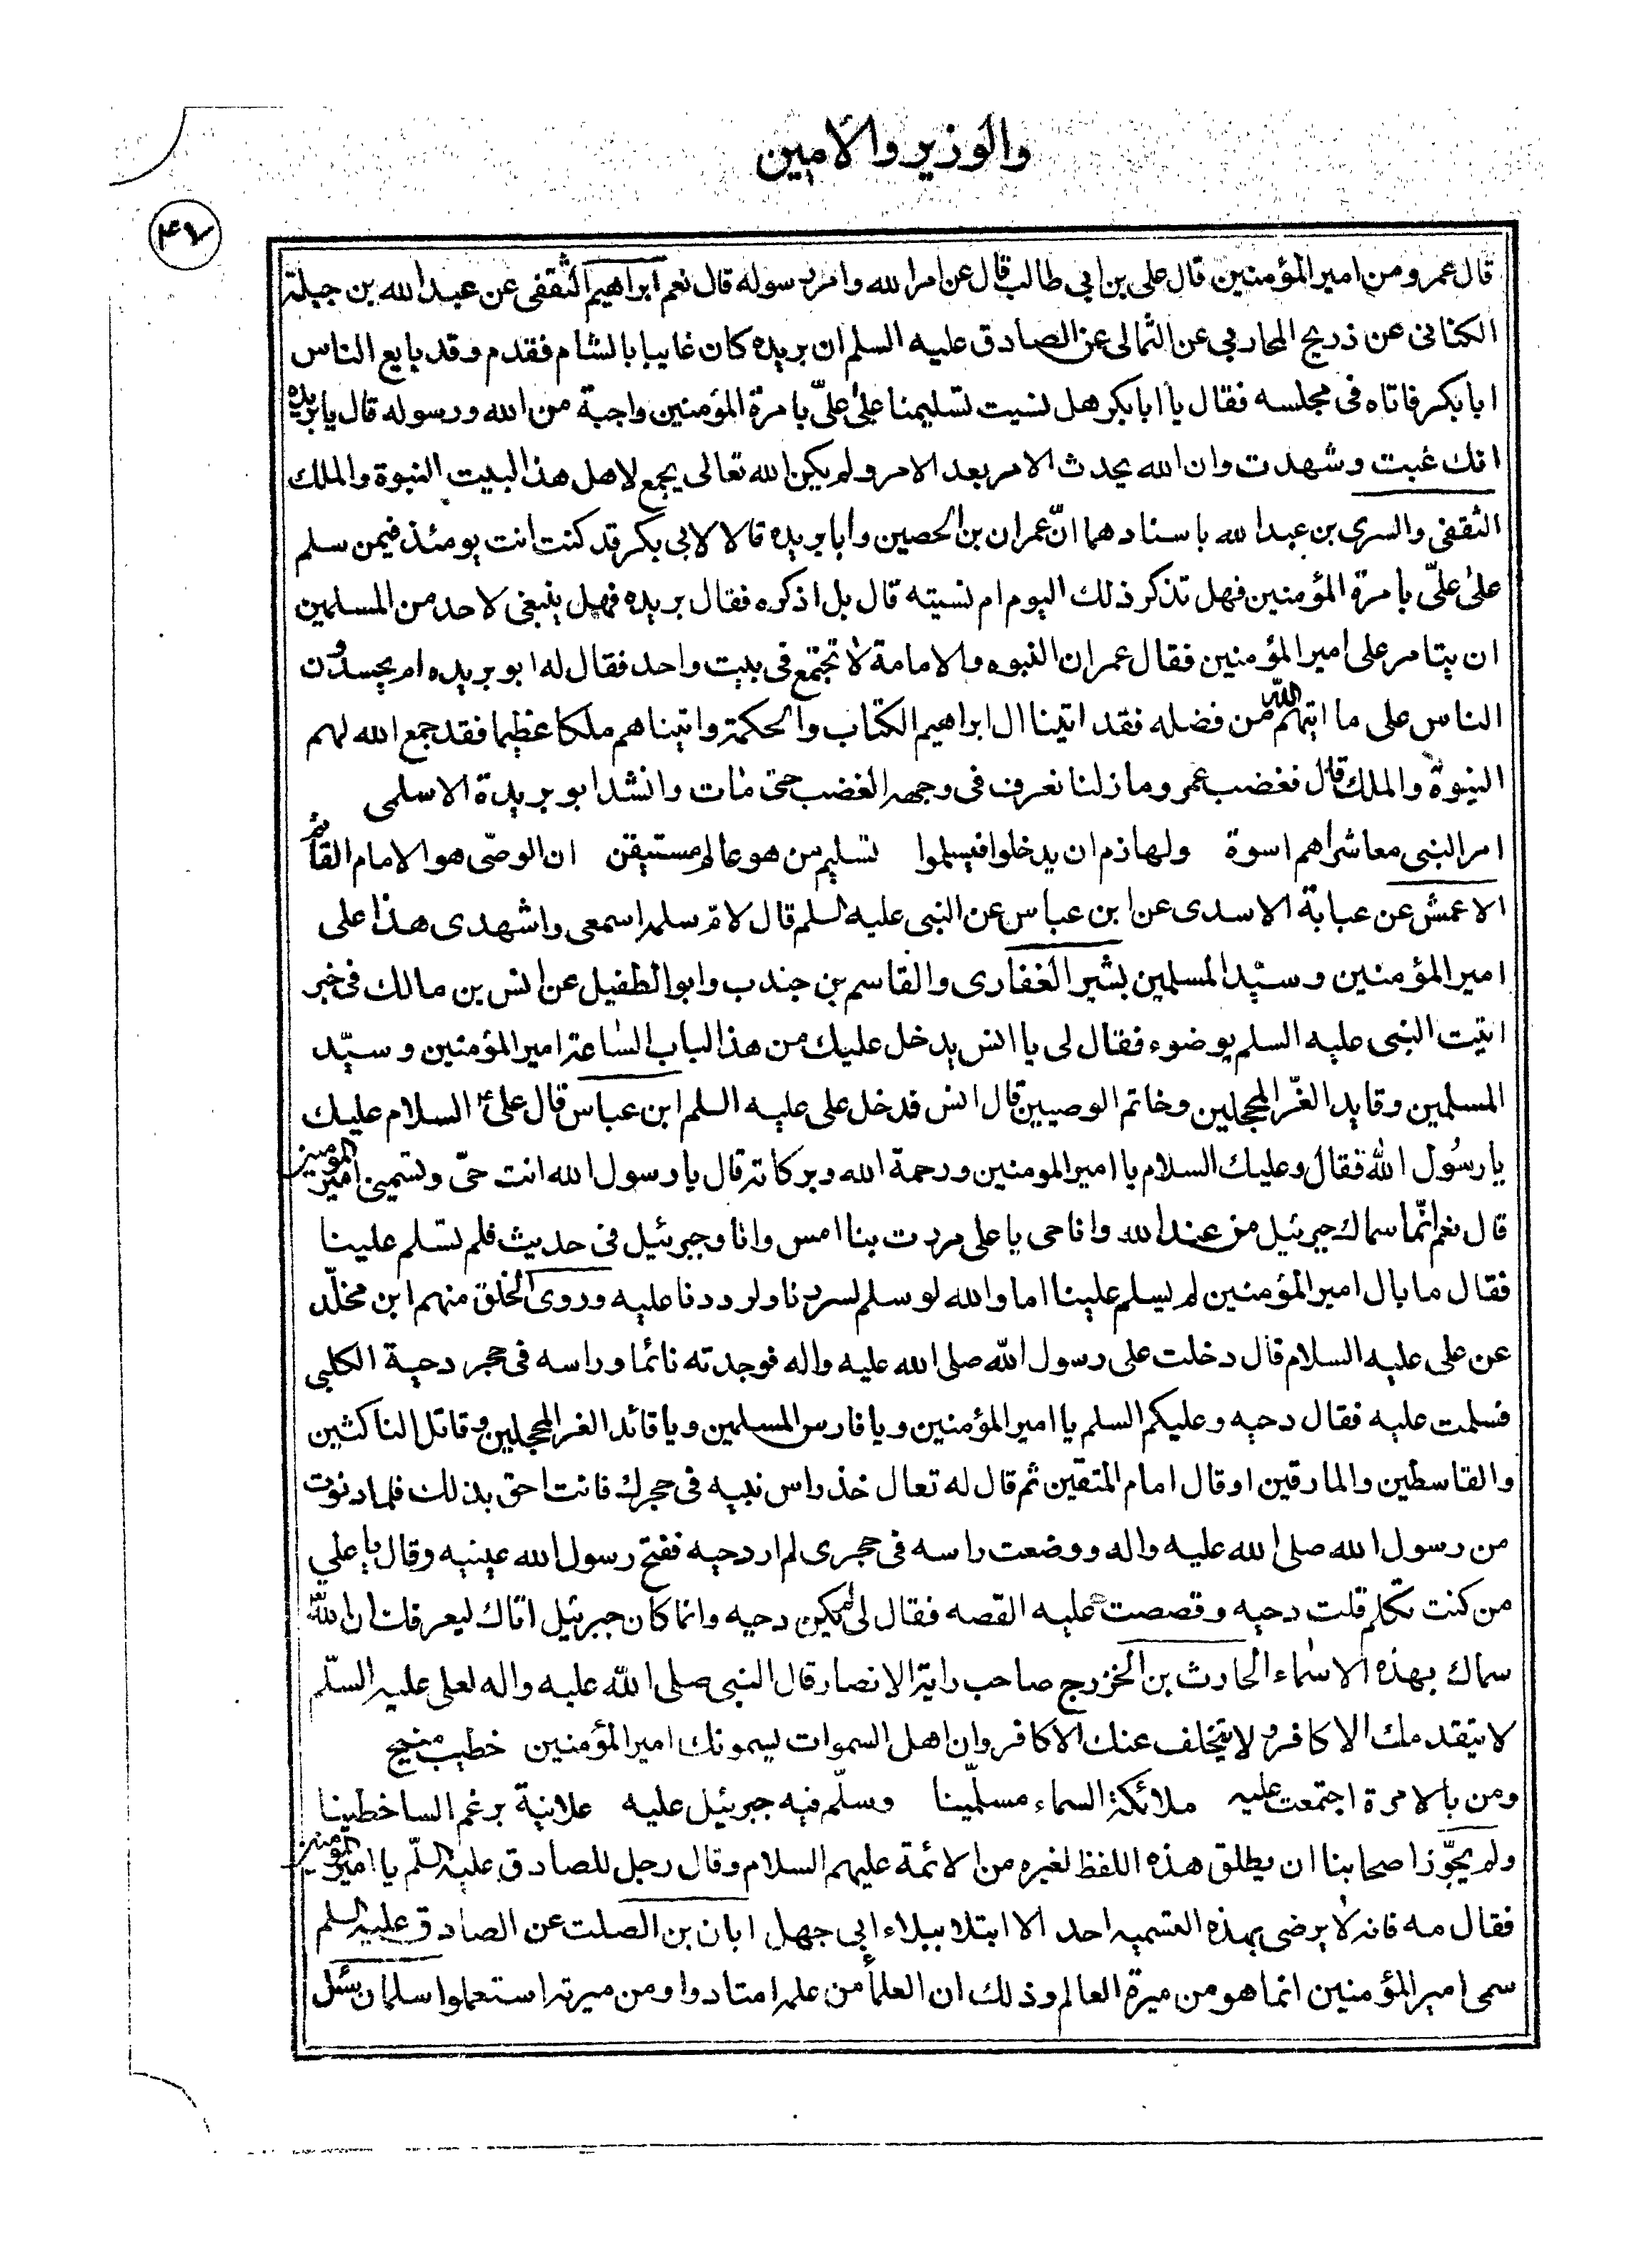 والوزير والامين
٤٧
قال عمر ومن امير المؤمنين قال على بن ابى طالب قال عن امر الله وامر رسوله قال نعم ابراهيم الثقفى عن عبد الله بن جبلة
الكنانى عن ذريح المحاربى عن الثمالى عن الصادق عليه السلم ان بريده كان غايبا بالشام فقدم وقد بايع الناس
ابا بكر فاتاه فى مجلسه فقال يا ابا بكر هل نسيت تسليمنا على علىّ بامرة المؤمنين واجبة من الله ورسوله قال يا بريده
انك غبت وشهدت وان الله يحدث الامر بعد الامر ولم يكن الله تعالى يجمع لاهل هذا البيت النبوة والملك
الثقفى والسرى بن عبد الله باسنادهما انّ عمران بن الحصين وابا بريده قالا لابى بكر قد كنت انت يومئذ فيمن سلم
على علىّ بامرة المؤمنين فهل تذكر ذلك اليوم ام نسيته قال بل اذكره فقال بريده فهل ينبغى لاحد من المسلمين
ان يتامر على امير المؤمنين فقال عمر ان النبوه والامامة لا تجتمع فى بيت واحد فقال له ابو بريده ام يحسدون
الناس على ما اتيهم الله من فضله فقد اتينا ال ابراهيم الكتاب والحكمة واتيناهم ملكا عظيما فقد جمع الله لهم
النبوة والملك قال فغضب عمر وما زلنا نعرف فى وجهه الغضب حتى مات وانشد ابو بريدة الاسلمى
امر النبى معاشرا هم اسوة ولهازم ان يدخلوا فيسلموا تسليم من هو عالم مستيقن ان الوصّى هو الامام القائم
الاعمش عن عباية الاسدى عن ابن عباس عن النبى عليه السلم قال لامّ سلمه اسمعى واشهدى هذا على
امير المؤمنين وسيّد المسلمين بشير الغفارى والقاسم بن جندب وابو الطفيل عن انس بن مالك فى خبر
اتيت النبى عليه السلم بوضوء فقال لى يا انس يدخل عليك من هذا الباب الساعة امير المؤمنين وسيّد
المسلمين وقايد الغّر المحجلين وخاتم الوصيين قال انس فدخل على عليه السلم ابن عباس قال علىّ ع السلام عليك
يا رسُول الله فقال وعليك السلام يا امير المومنين ورحمة الله وبركاته قال يا رسول الله انت حىّ وتسمينى امير المومنين
قال نعم انّما سماك جبرئيل من عند الله وانا حى يا على مردت بنا امس وانا وجبرئيل فى حديث فلم تسلم علينا
فقال ما بال امير المؤمنين لم يسلم علينا اما والله لو سلم لسررنا ولرددنا عليه وروى الخلق منهم ابن مخلّد
عن على عليه السلام قال دخلت على رسول الله صلى الله عليه واله فوجدته نائما وراسه فى حجر دحية الكلبى
فسلمت عليه فقال دحيه وعليكم السلم يا امير المؤمنين ويا فارس المسلمين ويا قائد الغر المحجلين وقاتل الناكثين
والقاسطين والمارقين او قال امام المتقين ثم قال له تعال خذ راس نبيه فى حجرك فانت احق بذلك فلما دنوت
من رسول الله صلى الله عليه واله ووضعت راسه فى حجرى لم ار دحيه ففتح رسول الله عينيه وقال يا على
من كنت تكلم قلت دحيه وقصصت عليه القصه فقال لى لم يكن دحيه وانما كان جبرئيل اتاك ليعرفك ان الله
سماك بهذه الاسماء الحارث بن الخزرج صاحب راية الانصار قال النبى صلى الله عليه واله لعلى عليه السلّم
لا يتقدمك الا كافر ولا يتخلف عنك الا كافر وان اهل السموات ليسمونك امير المؤمنين خطيب منبج
ومن بالامرة اجتمعت عليه ملائكة السماء مسلّمينا وسلّم فيه جبرئيل عليه علانية برغم الساخطينا
ولم يجوّز اصحابنا ان يطلق هذه اللفظ لغيره من الائمة عليهم السلام وقال رجل للصادق عليه السلّم يا امير المومنين
فقال مه فانه لا يرضى بهذه التسميه احد الا ابتلا ببلاء ابى جهل ابان بن الصلت عن الصادق عليه السلم
سمى امير المؤمنين انما هو من ميرة العالم وذلك ان العلمأ من علمه امتادوا ومن ميرته استعملوا سلمان سئل